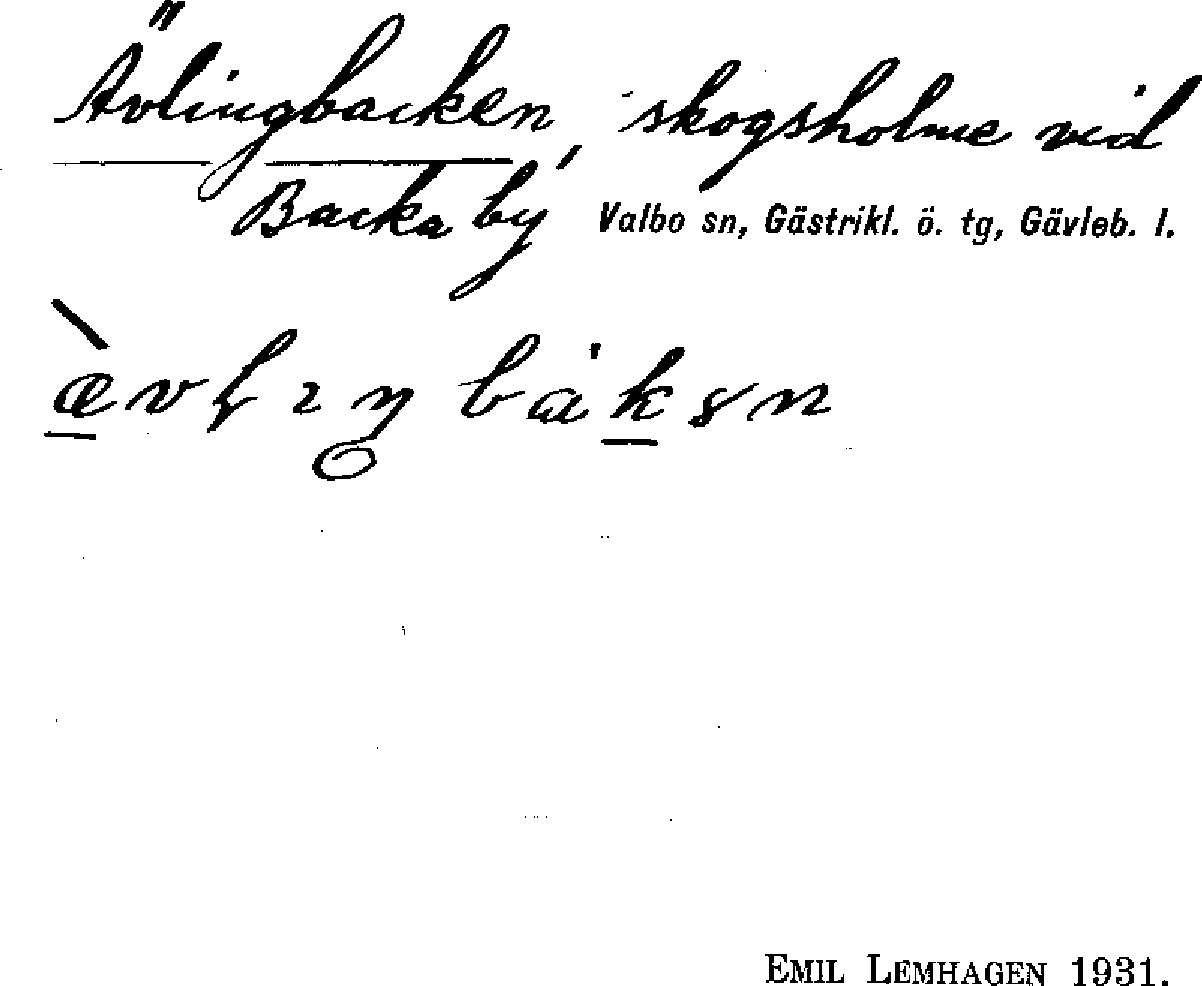 Ävlingbacken, skogsholme vid
Backa by, Valbo sn, Gästrikl. ö. tg, Gävleb. l.
EMIL LEMHAGEN 1931.